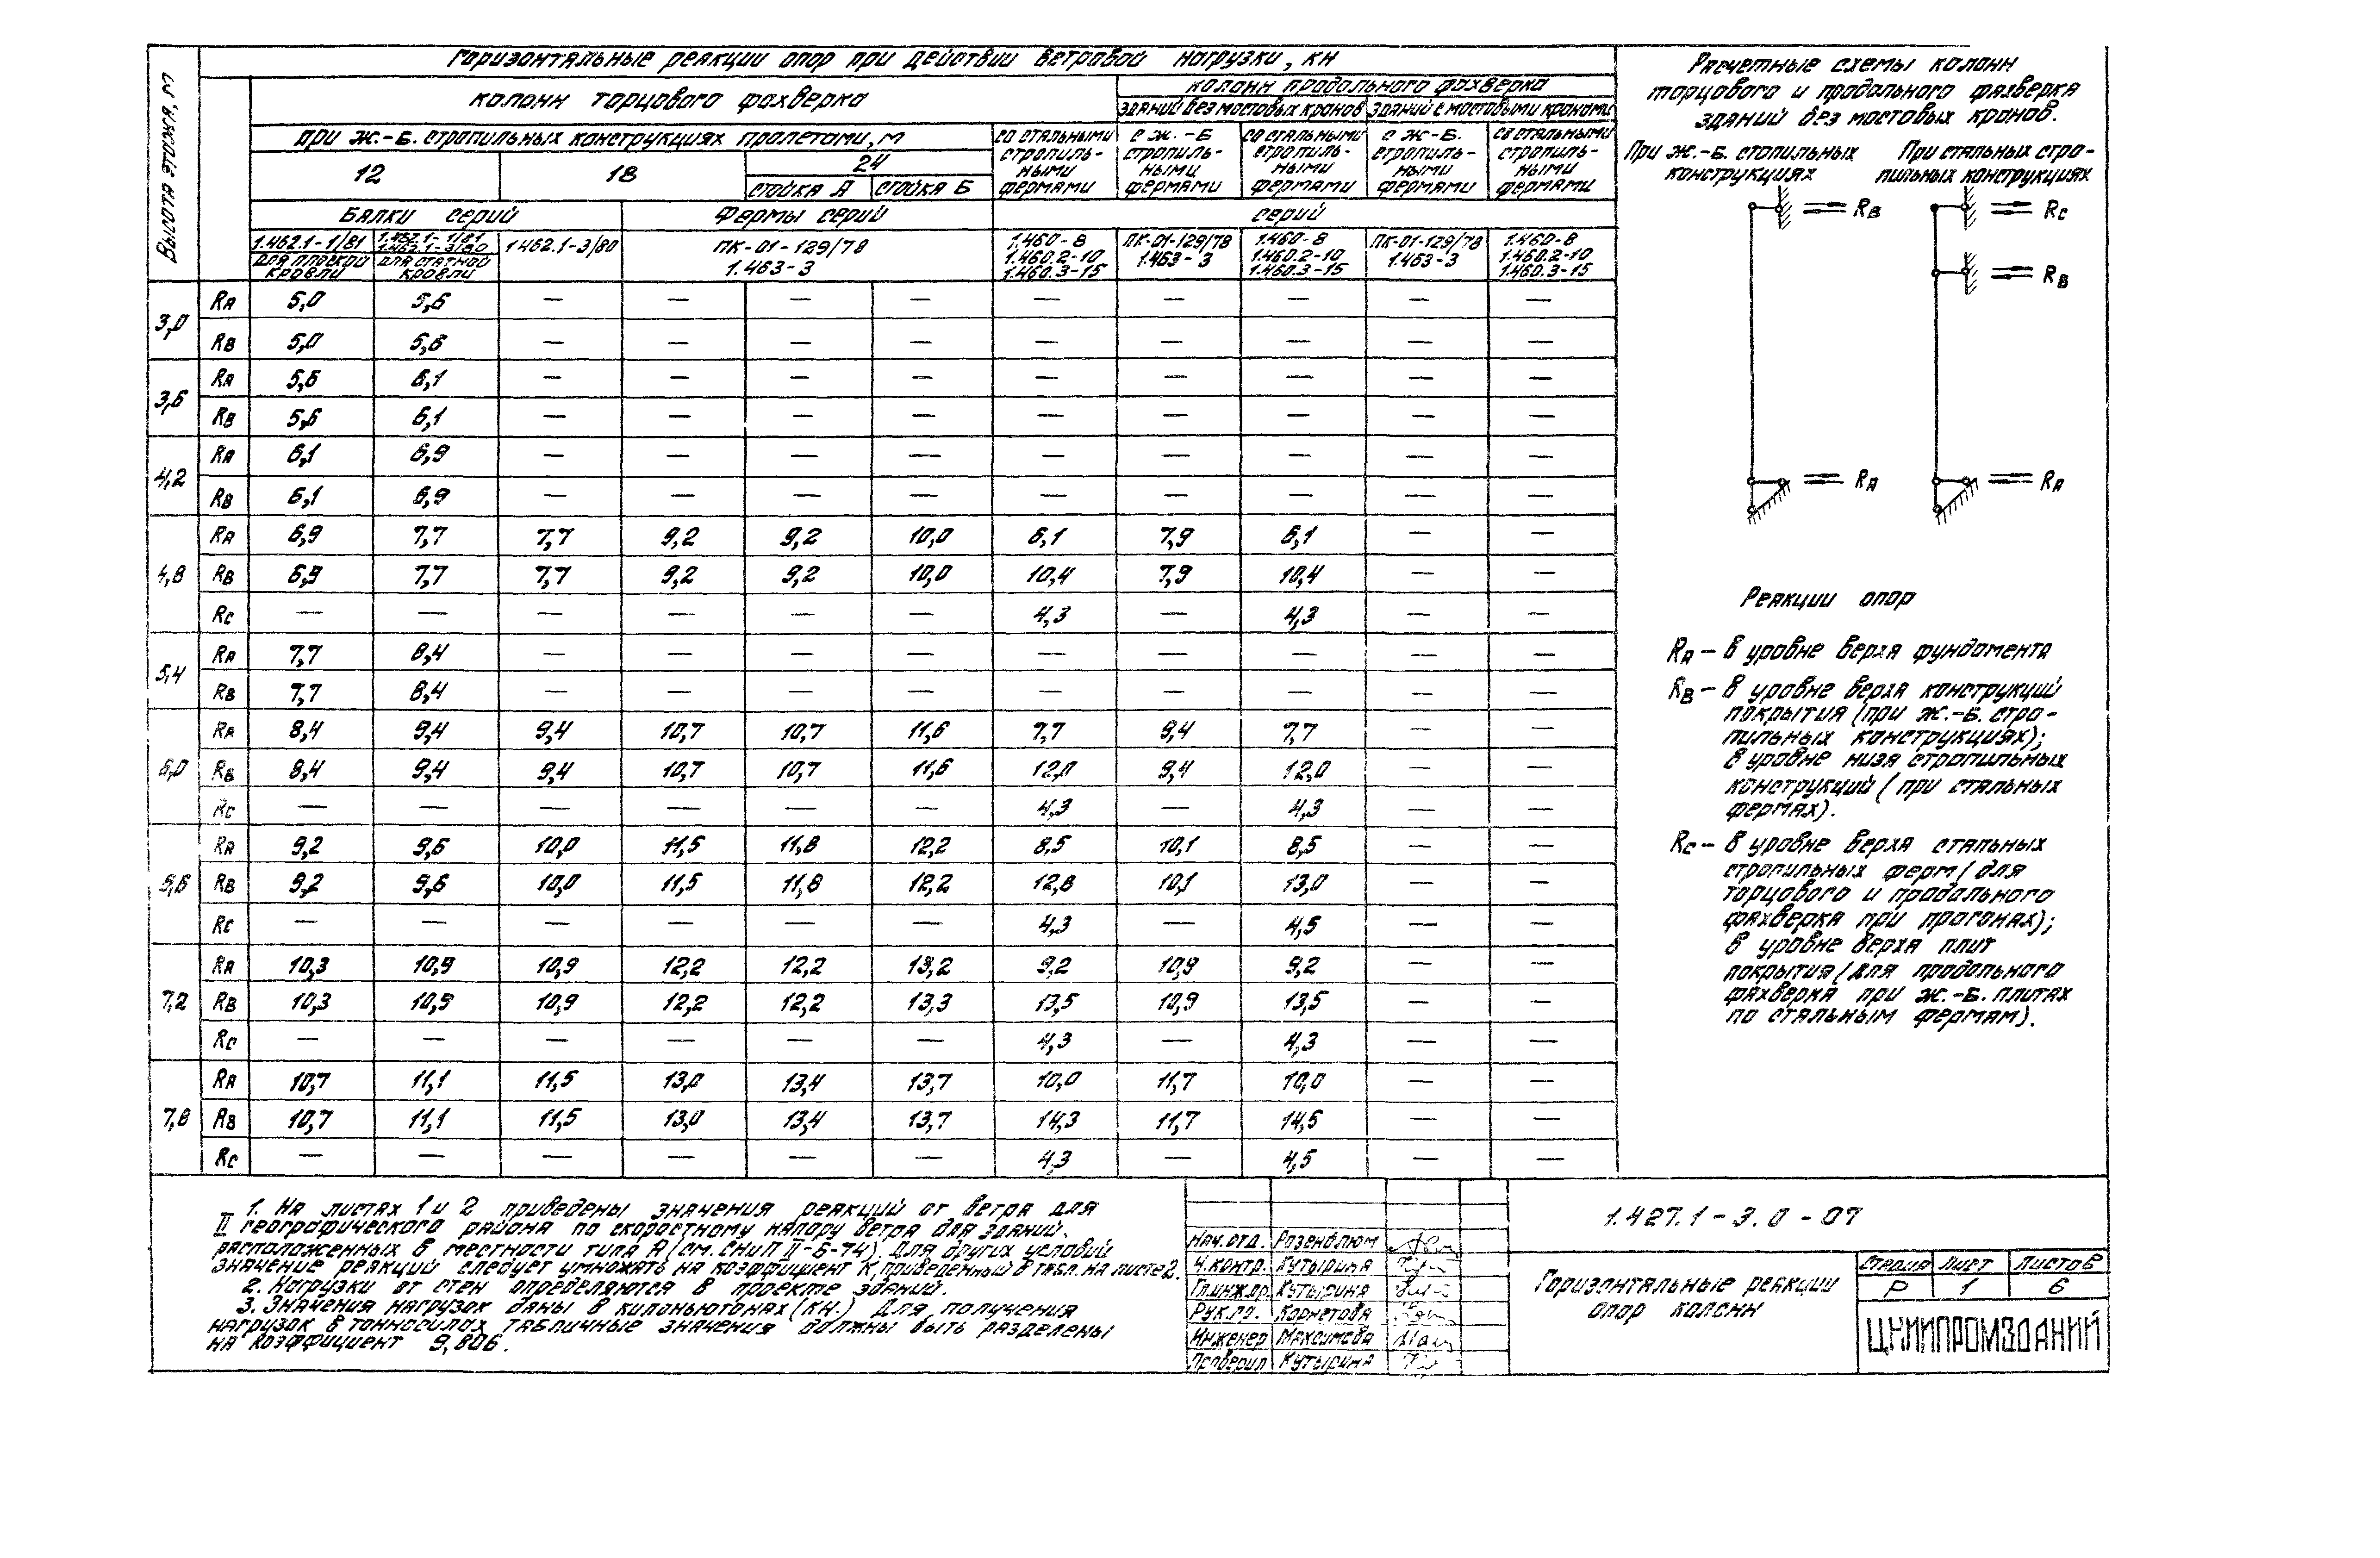 Высота этажа, м
Горизонтальные реакции опор при действии ветровой нагрузки, кН
колонн торцового фахверка
колонн продольного фахверка
зданий без мостовых кранов | зданий с мостовыми кранами
при ж.-б. стропильных конструкциях пролетами, м
12 | 18 | 24
стойка А | стойка Б
со стальными стропиль-ными фермами | с ж.-б. стропиль-ными фермами | со стальными стропиль-ными фермами | с ж-б. стропиль-ными фермами | со стальными стропиль-ными фермами
Балки серий | Фермы серий | серий
1.462.1-1/81 | 1.462.1-1/81 1.462.1-3/80 | 1462.1-3/80 | ПК-01-129/78 1.463-3 | 1.460-8 1.460.2-10 1.460.3-15 | ПК-01-129/78 1.463-3 | 1.460-8 1.460.2-10 1.460.3-15 | ПК-01-129/78 1.463-3 | 1.460-8 1.460.2-10 1.460.3-15
для плоской кровли | для скатной кровли
3,0
RA 5,0 5,6 — — — — — — — — —
RB 5,0 5,6 — — — — — — — — —
3,6
RA 5,6 6,1 — — — — — — — — —
RB 5,6 6,1 — — — — — — — — —
4,2
RA 6,1 6,9 — — — — — — — — —
RB 6,1 6,9 — — — — — — — — —
4,8
RA 6,9 7,7 7,7 9,2 9,2 10,0 6,1 7,9 6,1 — —
RB 6,9 7,7 7,7 9,2 9,2 10,0 10,4 7,9 10,4 — —
RC — — — — — — 4,3 — 4,3 — —
5,4
RA 7,7 8,4 — — — — — — — — —
RB 7,7 8,4 — — — — — — — — —
6,0
RA 8,4 9,4 9,4 10,7 10,7 11,6 7,7 9,4 7,7 — —
RB 8,4 9,4 9,4 10,7 10,7 11,6 12,0 9,4 12,0 — —
RC — — — — — — 4,3 — 4,3 — —
RA 9,2 9,6 10,0 11,5 11,8 12,2 8,5 10,1 8,5 — —
RB 9,2 9,6 10,0 11,5 11,8 12,2 12,8 10,1 13,0 — —
RC — — — — — — 4,3 — 4,5 — —
7,2
RA 10,3 10,9 10,9 12,2 12,2 13,2 9,2 10,9 9,2 — —
RB 10,3 10,9 10,9 12,2 12,2 13,3 13,5 10,9 13,5 — —
RC — — — — — — 4,3 — 4,3 — —
7,8
RA 10,7 11,1 11,5 13,0 13,4 13,7 10,0 11,7 10,0 — —
RB 10,7 11,1 11,5 13,0 13,4 13,7 14,3 11,7 14,5 — —
RC — — — — — — 4,3 — 4,5 — —
Расчетные схемы колонн
торцового и продольного фахверка
зданий без мостовых кранов.
При ж.-б. стопильных
конструкциях
При стальных стро-
пильных конструкциях
RB
RC
RB
RA
RA
Реакции опор
RA – в уровне верха фундамента
RB – в уровне верха конструкций
покрытия (при ж.-б. стро-
пильных конструкциях);
в уровне низа стропильных
конструкций (при стальных
фермах).
RC – в уровне верха стальных
стропильных ферм (для
торцового и продольного
фахверка при прогонах);
в уровне верха плит
покрытия (для продольного
фахверка при ж.-б. плитах
по стальным фермам).
1. На листах 1 и 2 приведены значения реакций от ветра для
II географического района по скоростному напору ветра для зданий.
расположенных в местности типа А (см. СНиП II-6-74). Для других условий
значение реакций следует умножать на коэффициент К, приведенный в табл. на листе 2.
2. Нагрузки от стен определяются в проекте зданий.
3. Значения нагрузок даны в килоньютонах (кН.) Для получения
нагрузок в тонносилах табличные значения должны быть разделены
на коэффициент 9,806.
Нач.отд. Розенблюм
Н.контр. Кутырина
Гл.инж.пр. Кутырина
Рук.гр. Корнетова
Инженер Максимова
Проверил Кутырина
1.427.1-3.0-07
Горизонтальные реакции
опор колонн
Стадия Лист Листов
Р 1 6
ЦНИИПРОМЗДАНИЙ